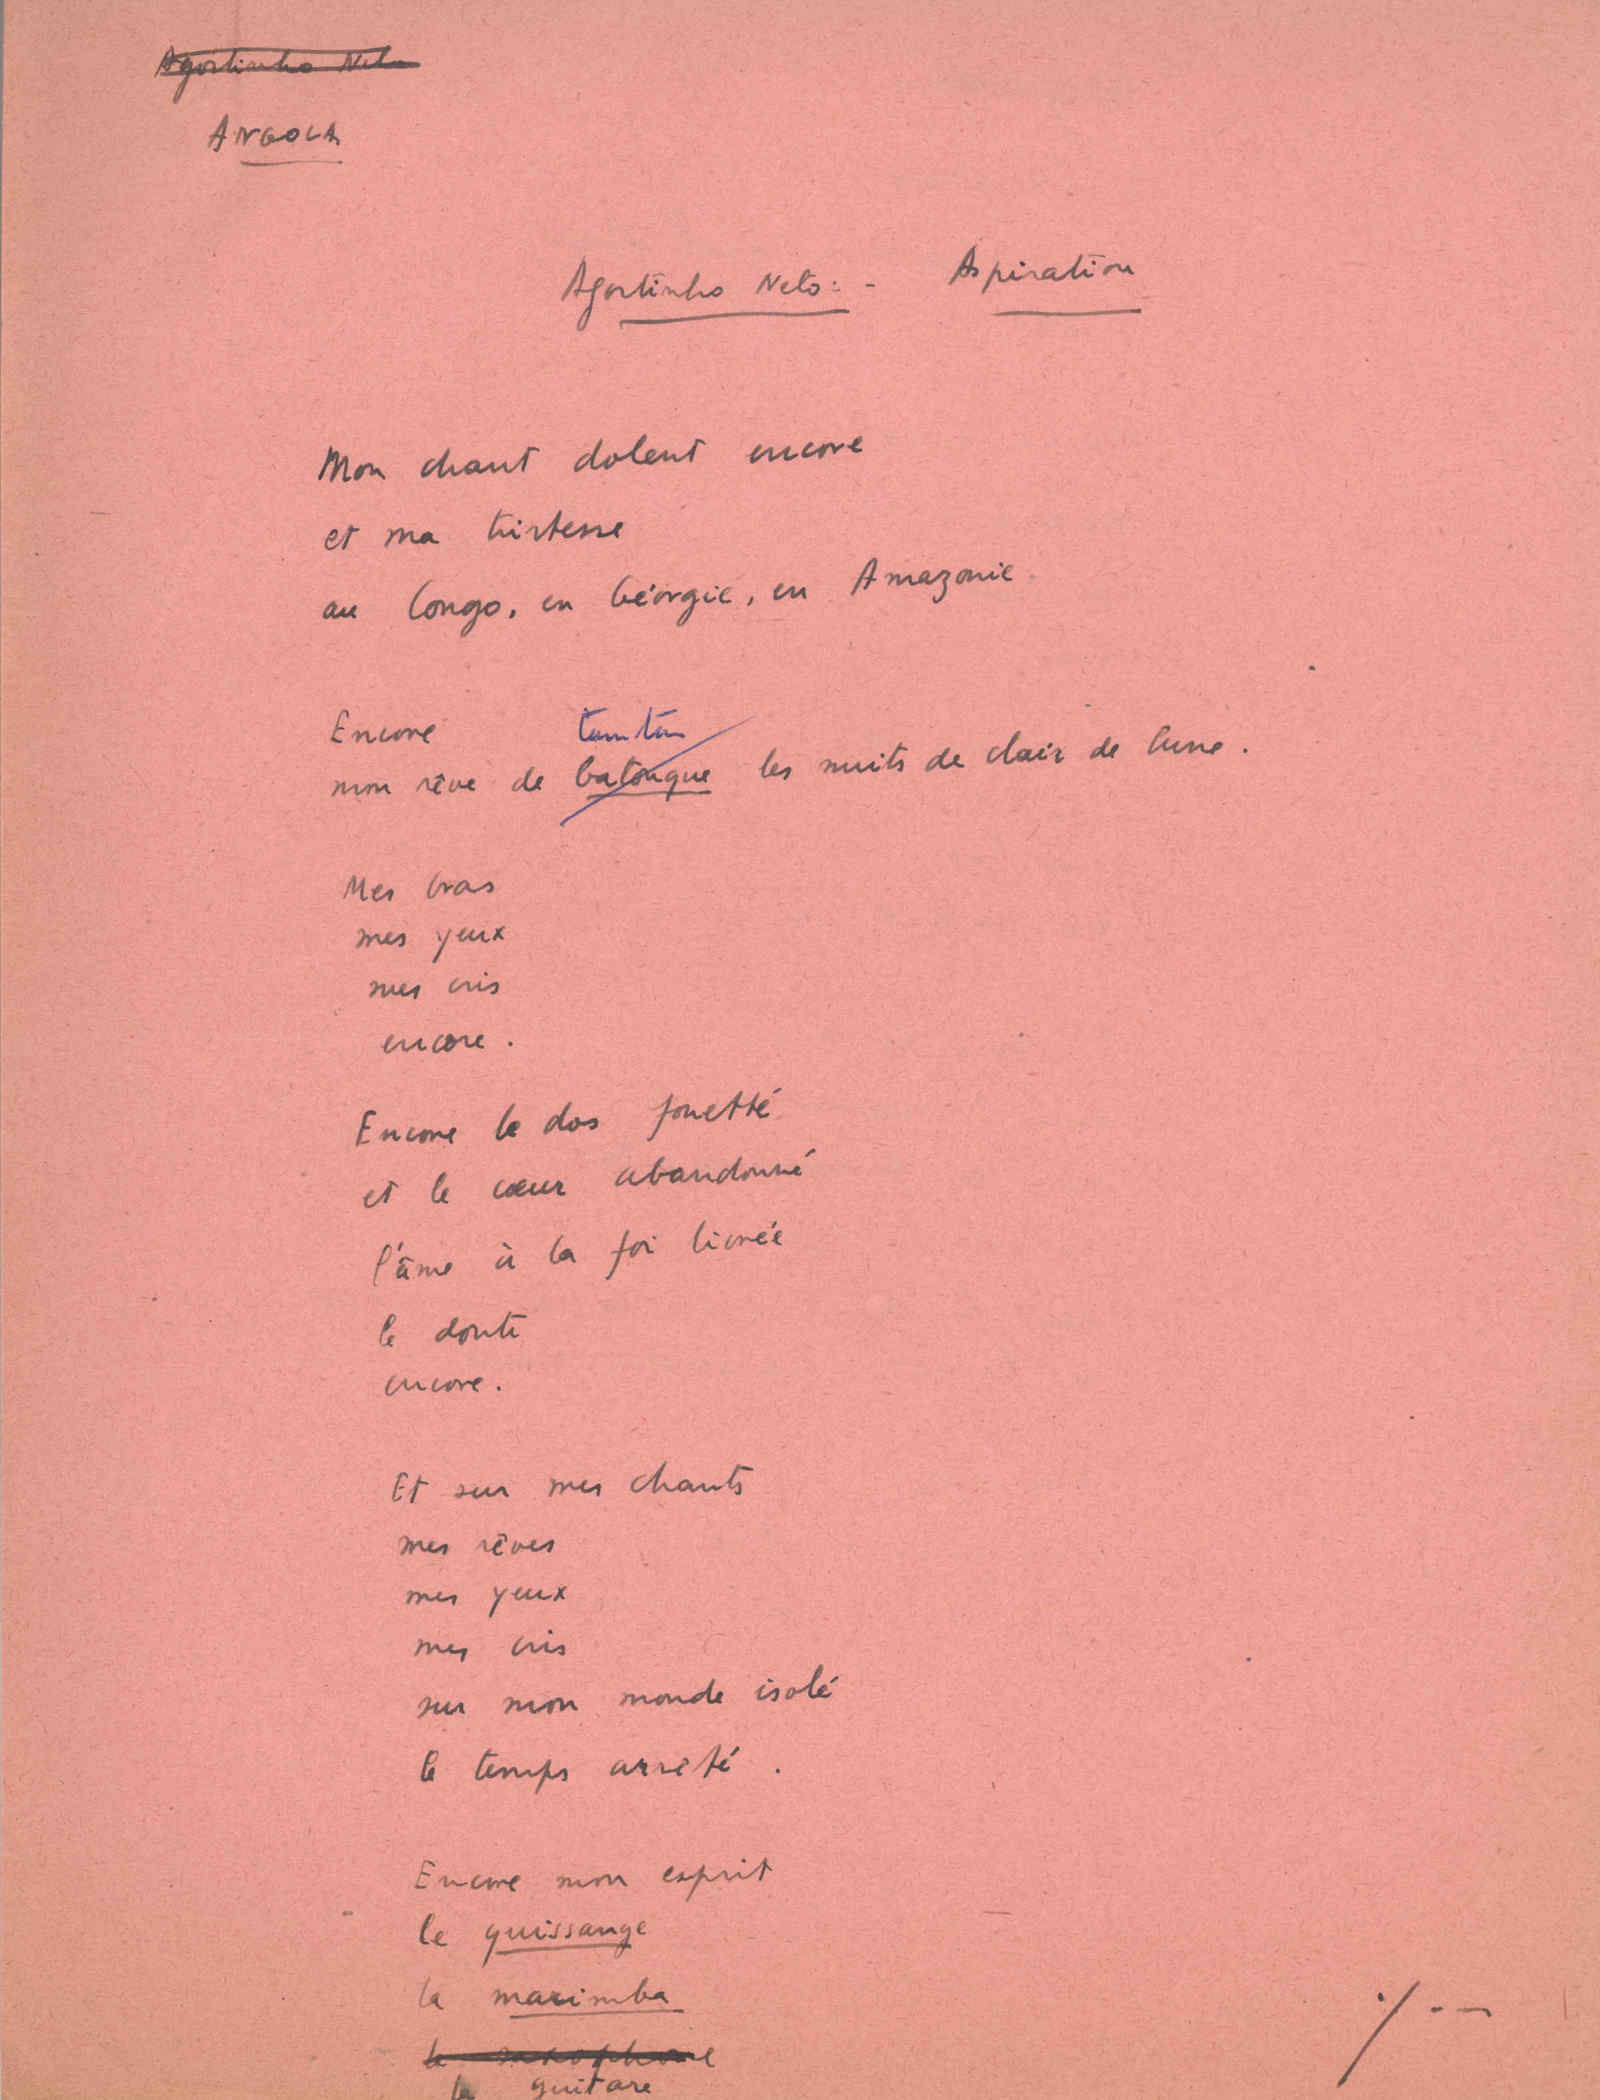 Agostinho Neto
ANGOLA
Agostinho Neto: - Aspiration
Mon chant dolent encore
et ma tristesse
au Congo, en Géorgie, en Amazonie.
Encore
tamtam
mon rêve de batouque les nuits de clair de lune.
Mes bras
mes yeux
mes cris
encore.
Encore le dos fouetté
et le cœur abandonné
l'âme à la foi livrée
le doute
encore.
Et sur mes chants
mes rêves
mes yeux
mes cris
sur mon monde isolé
le temps arrêté.
Encore mon esprit
le quissange
la marimba
le saxophone
la guitare
./. --